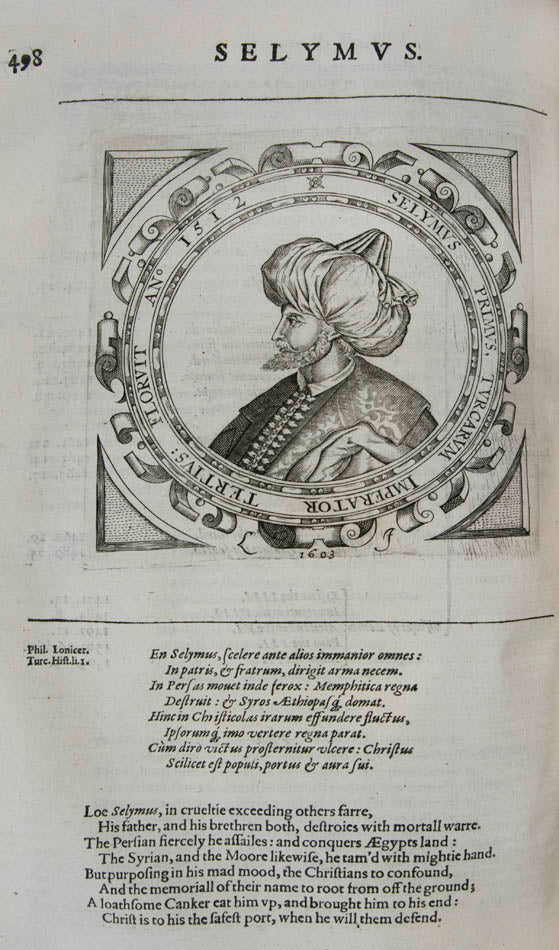 498
SELYMVS.
SELYMVS PRIMVS, TVRCARVM IMPERATOR TERTIVS: FLORVIT AN° 1512
L I
1603
Phil. Lonicer.
Turc. Hist. li. 1.
En Selymus, ſcelere ante alios immanior omnes:
In patris, & fratrum, dirigit arma necem.
In Perſas mouet inde ferox: Memphitica regna
Deſtruit: & Syros Æthiopaſq́, domat.
Hinc in Chriſticolas irarum effundere fluctus,
Ipſorumq́, imo vertere regna parat.
Cùm diro victus proſternitur vlcere: Chriſtus
Scilicet eſt populi, portus & aura ſui.
Loe Selymus, in crueltie exceeding others farre,
His father, and his brethren both, deſtroies with mortall warre.
The Perſian fiercely he aſſailes: and conquers Ægypts land:
The Syrian, and the Moore likewiſe, he tam'd with mightie hand.
But purpoſing in his mad mood, the Chriſtians to confound,
And the memoriall of their name to root from off the ground;
A loathſome Canker eat him vp, and brought him to his end:
Chriſt is to his the ſafeſt port, when he will them defend.